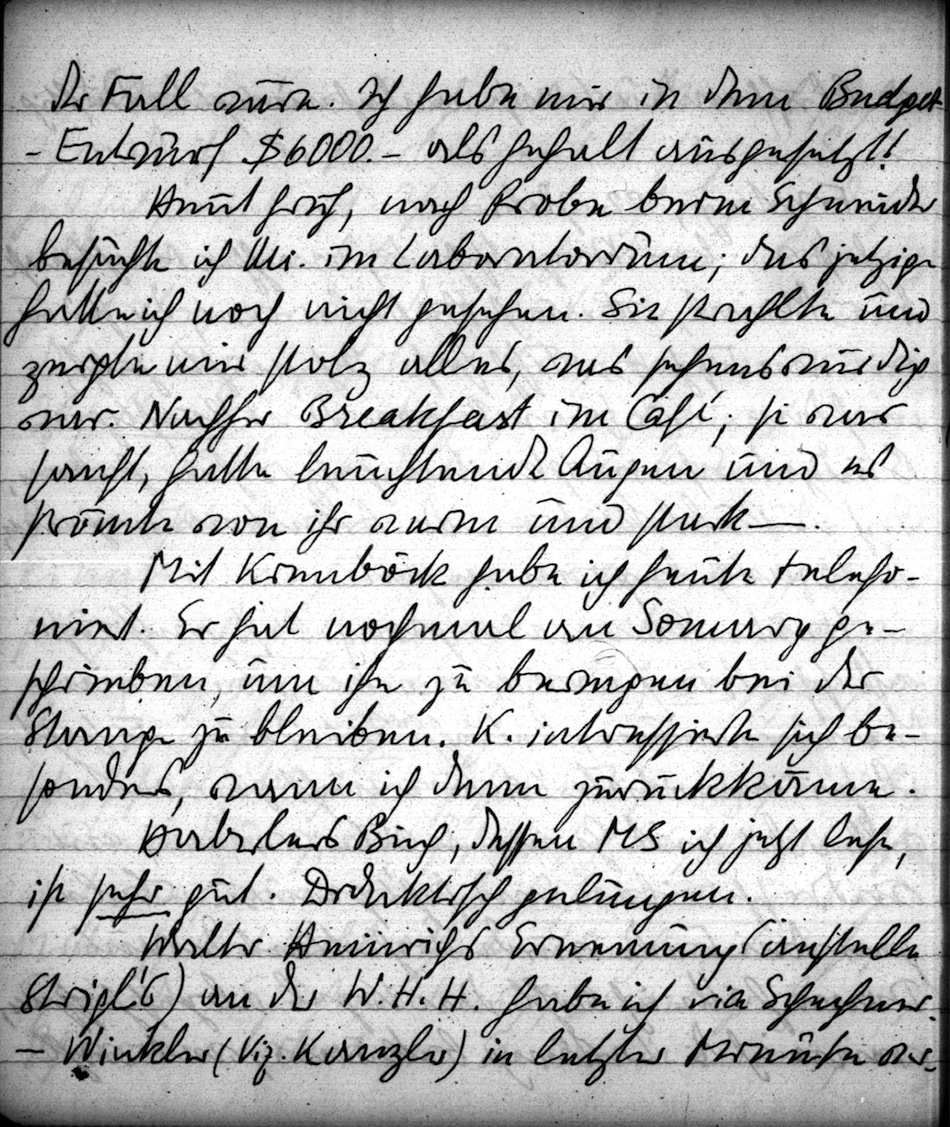 der Fall wäre. Ich habe mir in dem Budget
- Entwurf $6000.- als Gehalt ausgesetzt!
Heut früh, nach Probe beim Schneider
besuchte ich Mi. im Laboratorium; das jetzige
hatte ich noch nicht gesehen. Sie strahlte und
zeigte mir stolz alles, was sehenswürdig
war. Nachher Breakfast im Café; sie war
sanft, hatte leuchtende Augen und es
strömte von ihr warm und stark —.
Mit Krenböck habe ich heute telefo-
niert. Er hat nochmal an Somary ge-
schrieben, um ihn zu bewegen bei der
Stange zu bleiben. K. intressierte sich be-
sonders, wann ich denn zurückkäme.
Haberlers Buch, dessen MS ich jetzt lese,
ist sehr gut. Didaktisch gelungen.
Walter Heinrichs Ernennung (anstelle
Strigl's) an der W.H.H. habe ich via Schuschnigg
- Winkler (Viz. Kanzler) in letzter Minute ver-